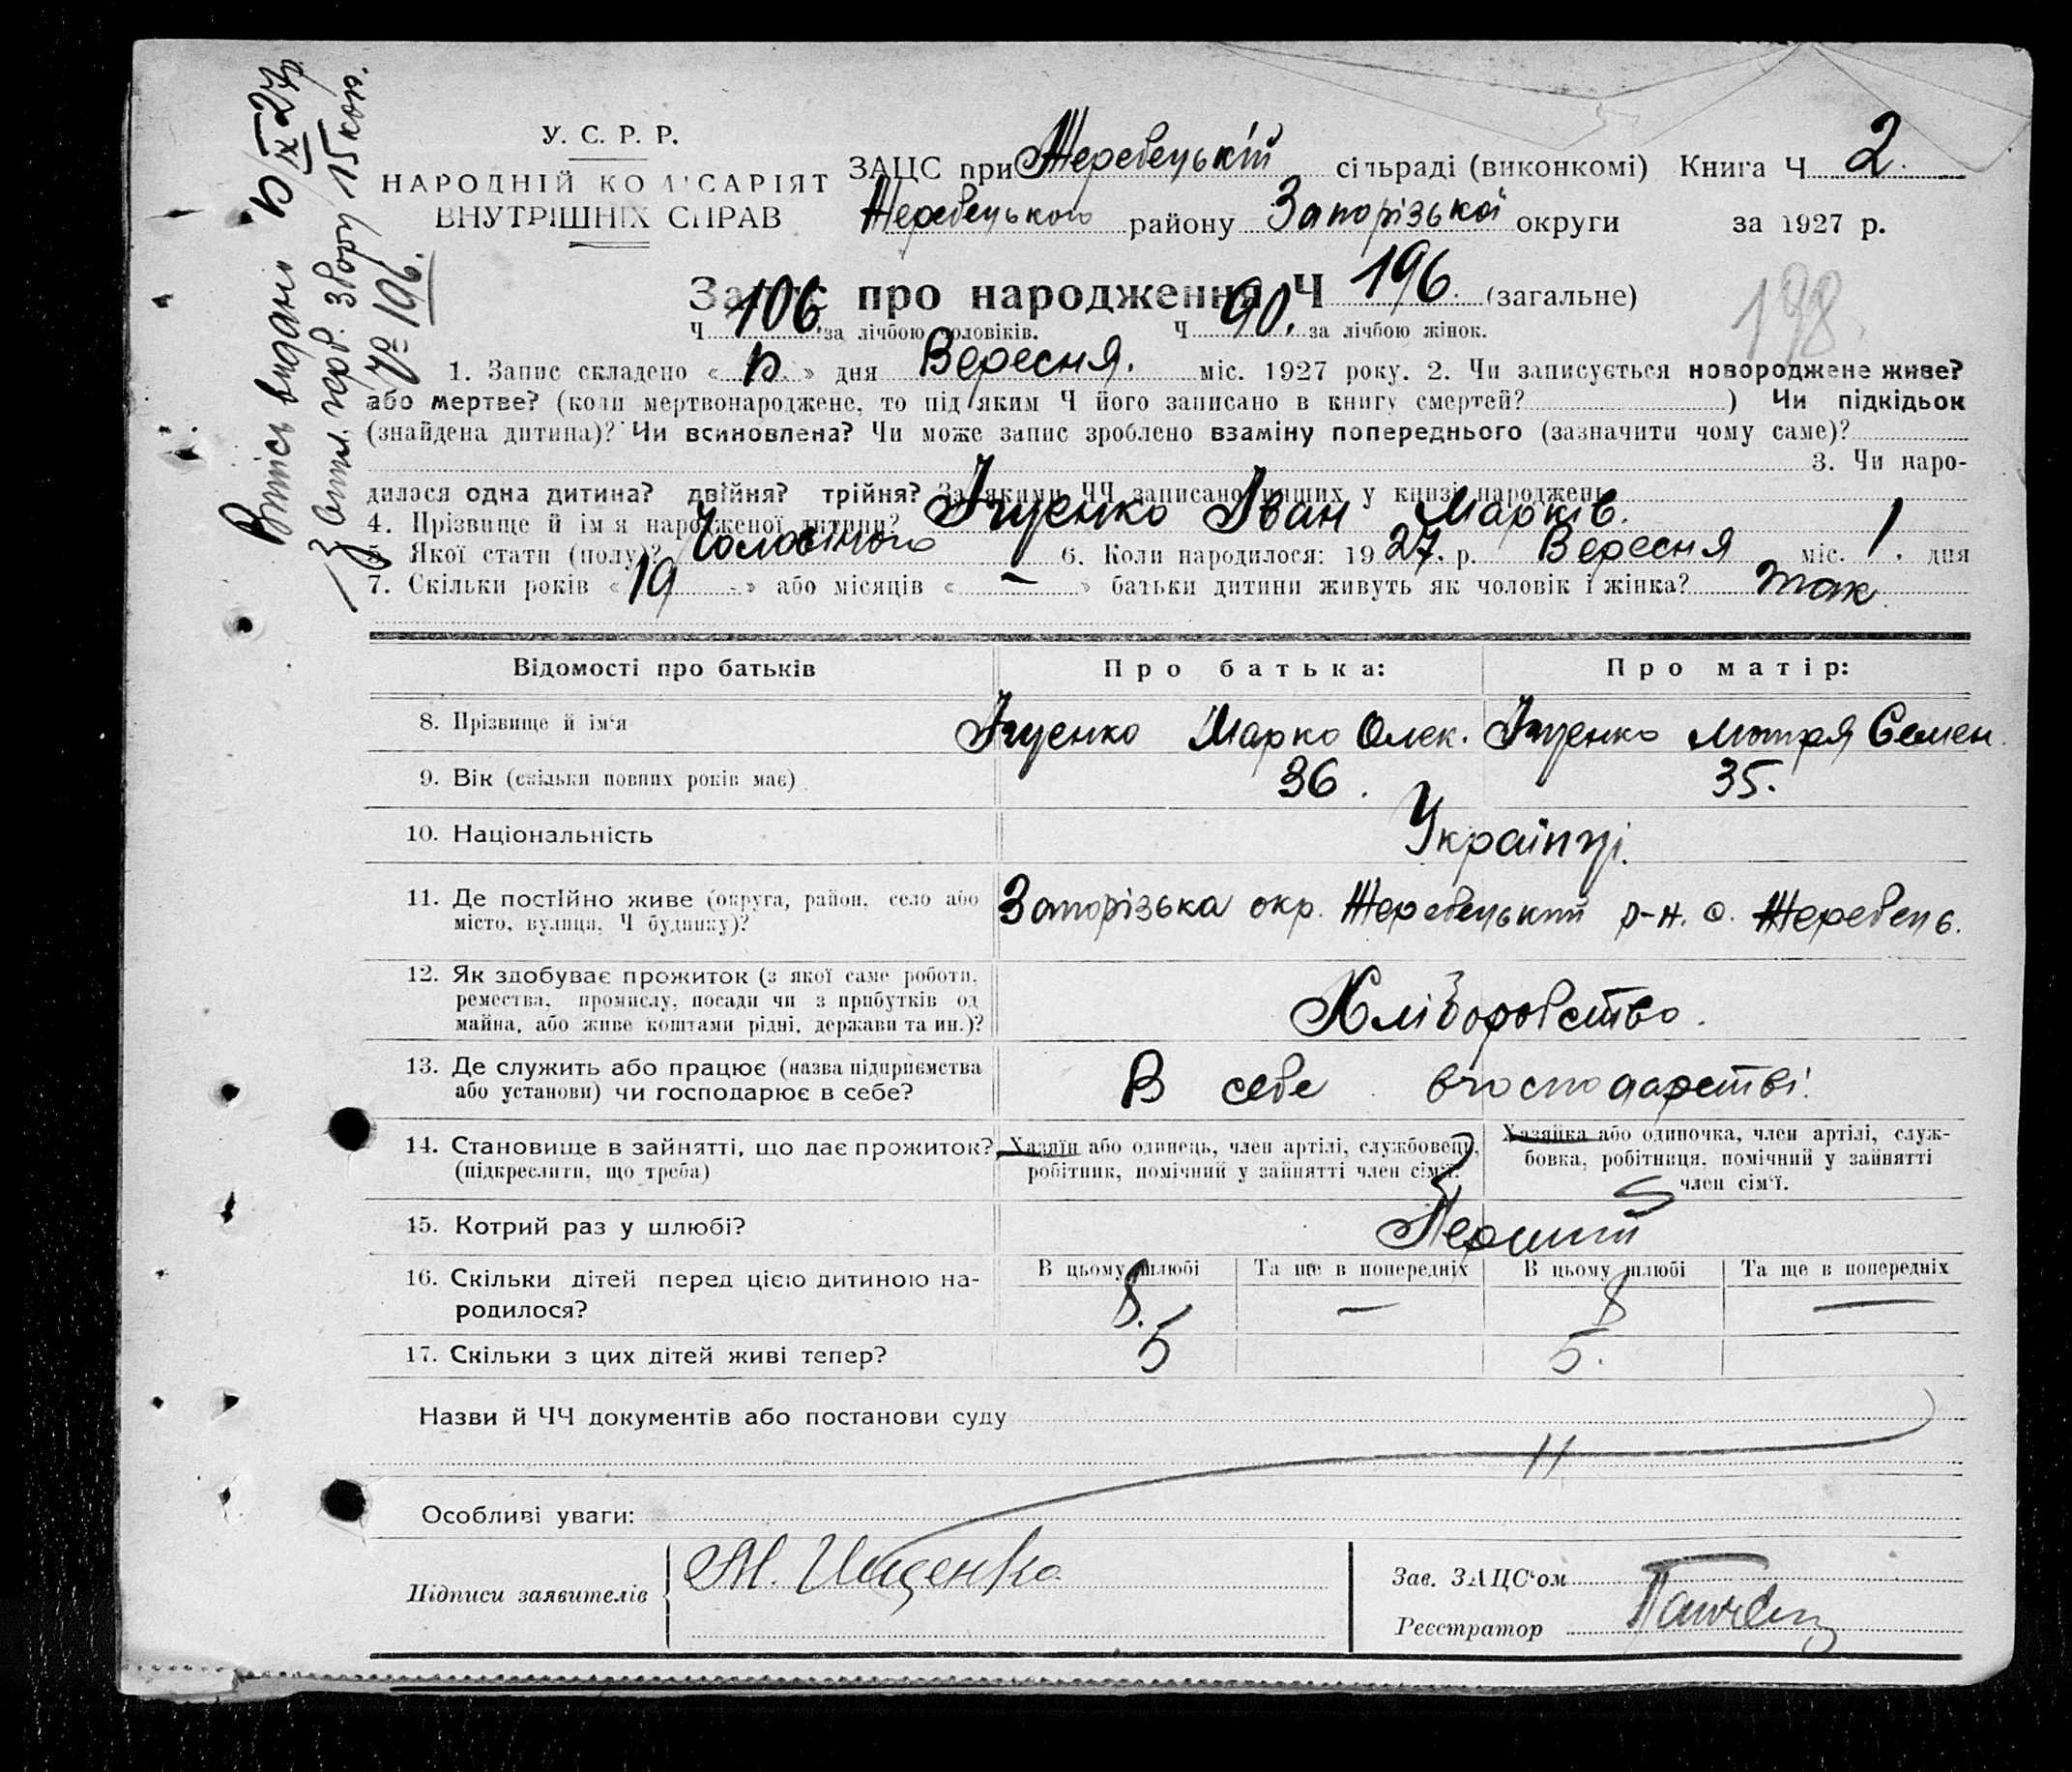 У. С. Р. Р.
НАРОДНІЙ КОМІСАРІЯТ
ВНУТРІШНІХ СПРАВ
ЗАЦС при Жеребецькій сільраді (виконкомі) Книга Ч 2.
Жеребецького району Запорізької округи за 1927 р.
Запис про народження Ч 196. (загальне)
198
Ч 106. за лічбою чоловіків. Ч 90. за лічбою жінок.
1. Запис складено « » дня Вересня. міс. 1927 року. 2. Чи записується новороджене живе?
або мертве? (коли мертвонароджене, то під яким Ч його записано в книгу смертей? ) Чи підкідьок
(знайдена дитина)? Чи всиновлена? Чи може запис зроблено взаміну попереднього (зазначити чому саме)?
3. Чи наро-
дилася одна дитина? двійня? трійня? За якими ЧЧ записано инших у книзі народжень
4. Прізвище й ім'я народженої дитини? Іщенко Іван Марків.
5. Якої стати (полу)? Чоловічого 6. Коли народилося: 1927. р. Вересня міс. 1. дня
7. Скільки років « 19 » або місяців « — » батьки дитини живуть як чоловік і жінка? так.
Відомості про батьків Про батька: Про матір:
8. Прізвище й ім'я Іщенко Марко Олек. Іщенко Мотря Семен.
9. Вік (скільки повних років має) 36. 35.
10. Національність Українці.
11. Де постійно живе (округа, район, село або
місто, вулиця, Ч будинку)? Запорізька окр. Жеребецький р-н. с. Жеребець.
12. Як здобуває прожиток (з якої саме роботи,
ремества, промислу, посади чи з прибутків од
майна, або живе коштами рідні, держави та ин.)? Хліборобство.
13. Де служить або працює (назва підприємства
або установи) чи господарює в себе? В себе в господарстві.
14. Становище в зайнятті, що дає прожиток?
(підкреслити, що треба)
Хазяїн або одинець, член артілі, службовець,
робітник, помічний у зайнятті член сім'ї.
Хазяйка або одиночка, член артілі, служ-
бовка, робітниця, помічний у зайнятті
член сім'ї.
15. Котрий раз у шлюбі? Перший
В цьому шлюбі Та ще в попередніх В цьому шлюбі Та ще в попередніх
16. Скільки дітей перед цією дитиною на-
родилося? 8. — 8 —
17. Скільки з цих дітей живі тепер? 5 5.
Назви й ЧЧ документів або постанови суду
Особливі уваги:
Підписи заявителів М. Ищенко
Зав. ЗАЦС'ом
Реєстратор
Випись видано
15 коп.
№ 196.